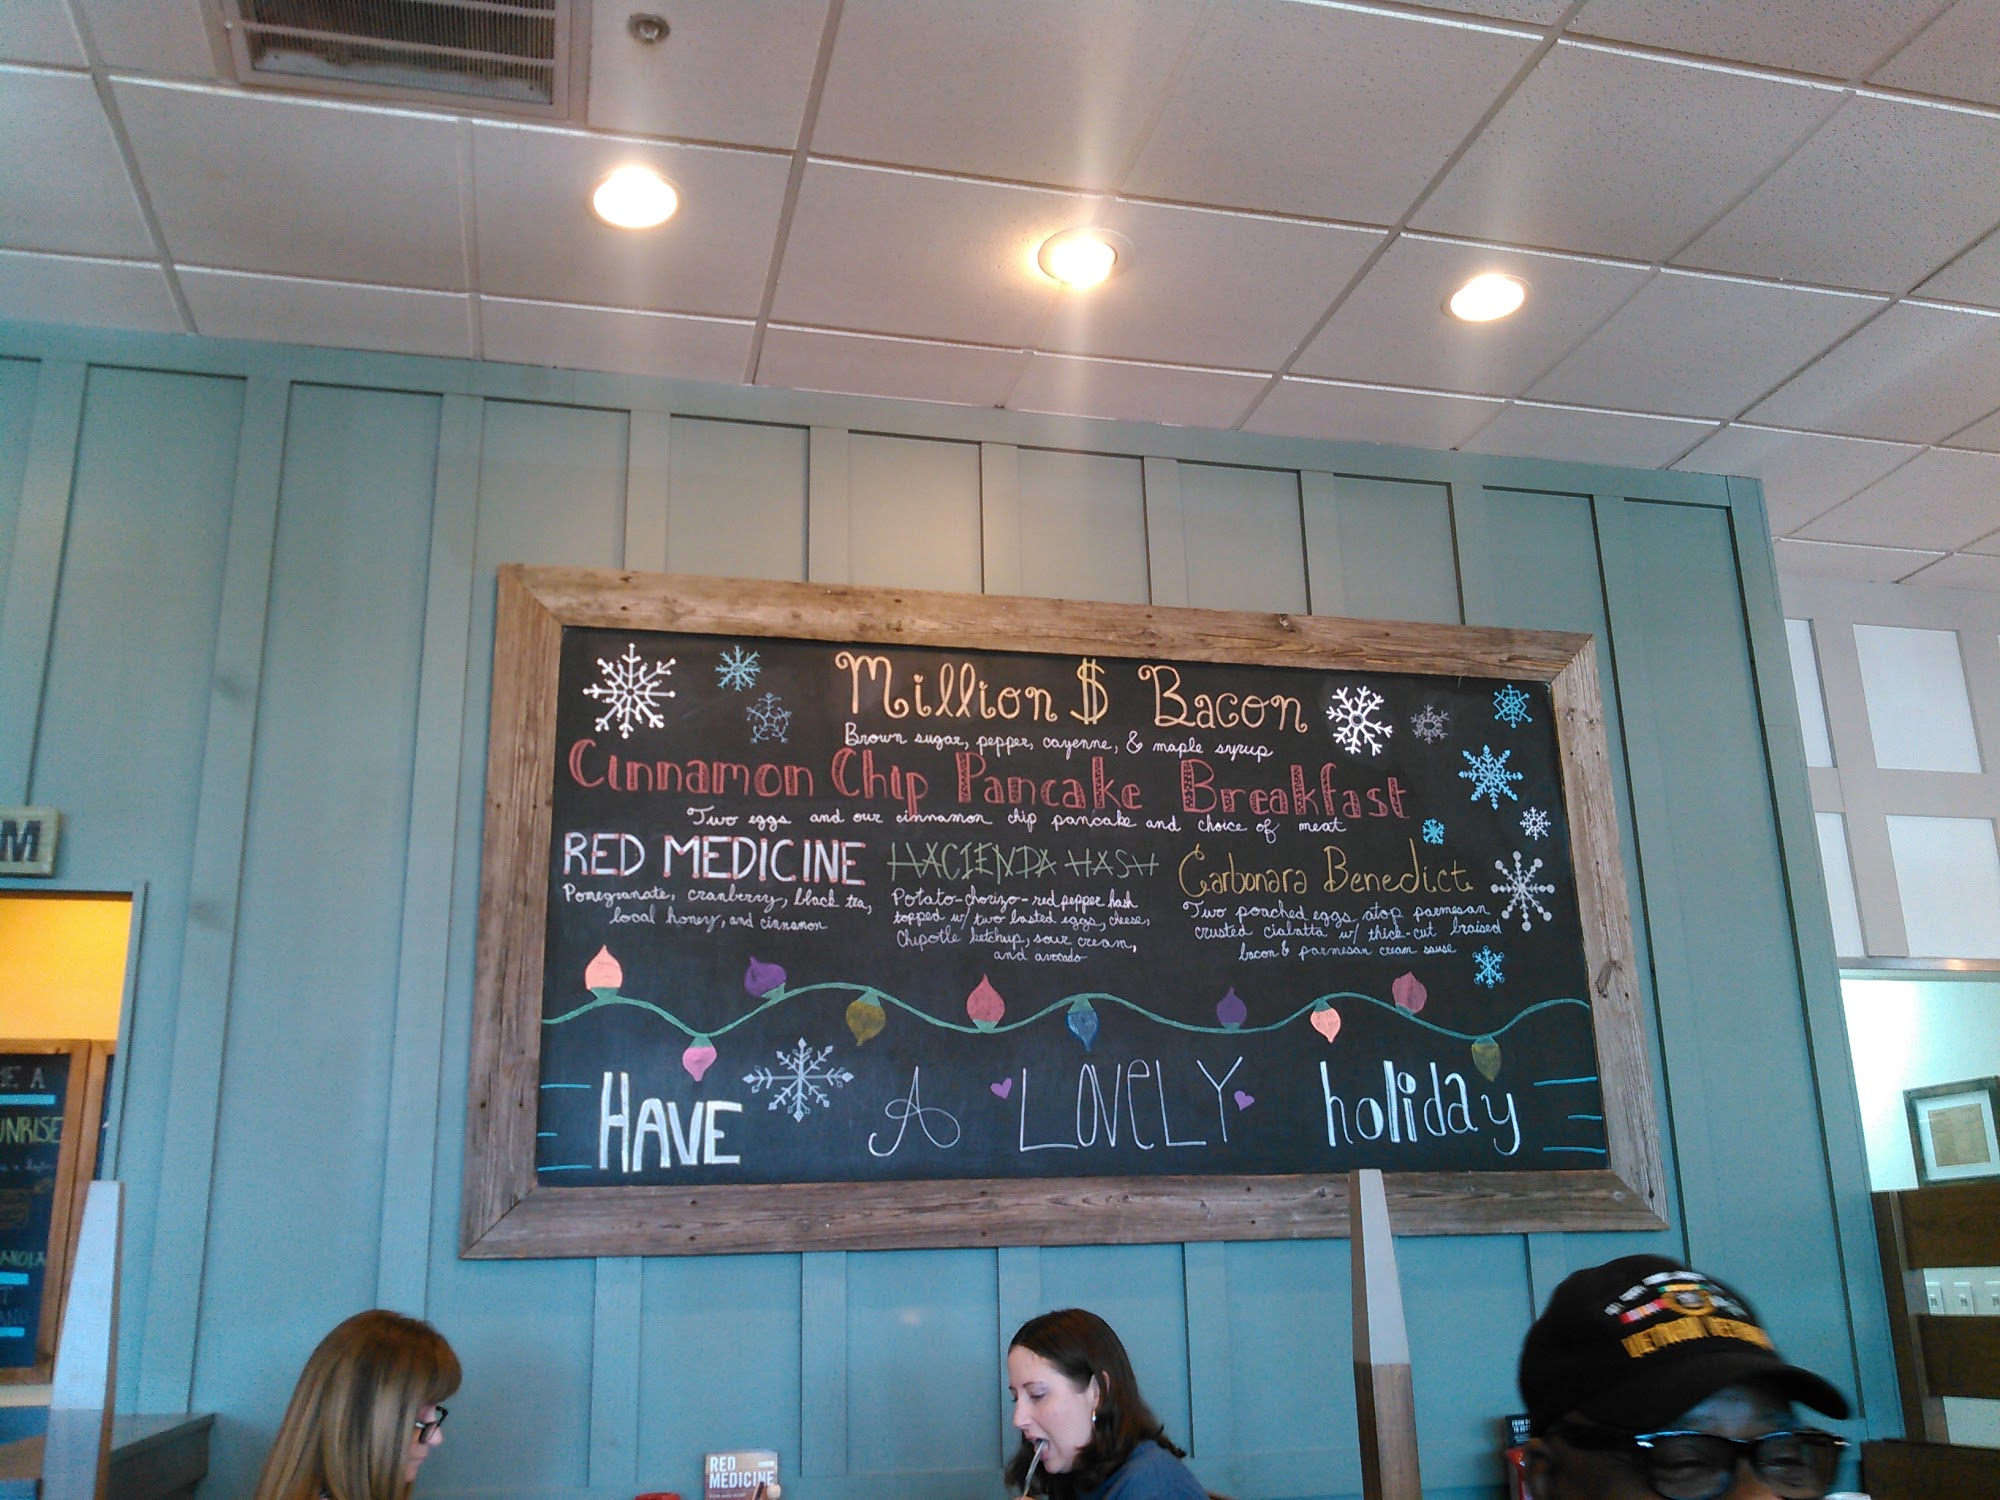 Million $ Bacon
Brown sugar, pepper, cayenne, & maple syrup
Cinnamon Chip Pancake Breakfast
Two eggs and our cinnamon chip pancake and choice of meat
RED MEDICINE
Pomegranate, cranberry, black tea,
local honey, and cinnamon
HACIENDA HASH
Potato-chorizo-red pepper hash
topped w/ two basted eggs, cheese,
Chipotle ketchup, sour cream,
and avocado
Carbonara Benedict
Two poached eggs atop parmesan
crusted ciabatta w/ thick-cut braised
bacon & parmesan cream sause
HAVE A LOVELY holiday
M
E A
UNRISE
RED
MEDICINE
VIETNAM VETERAN